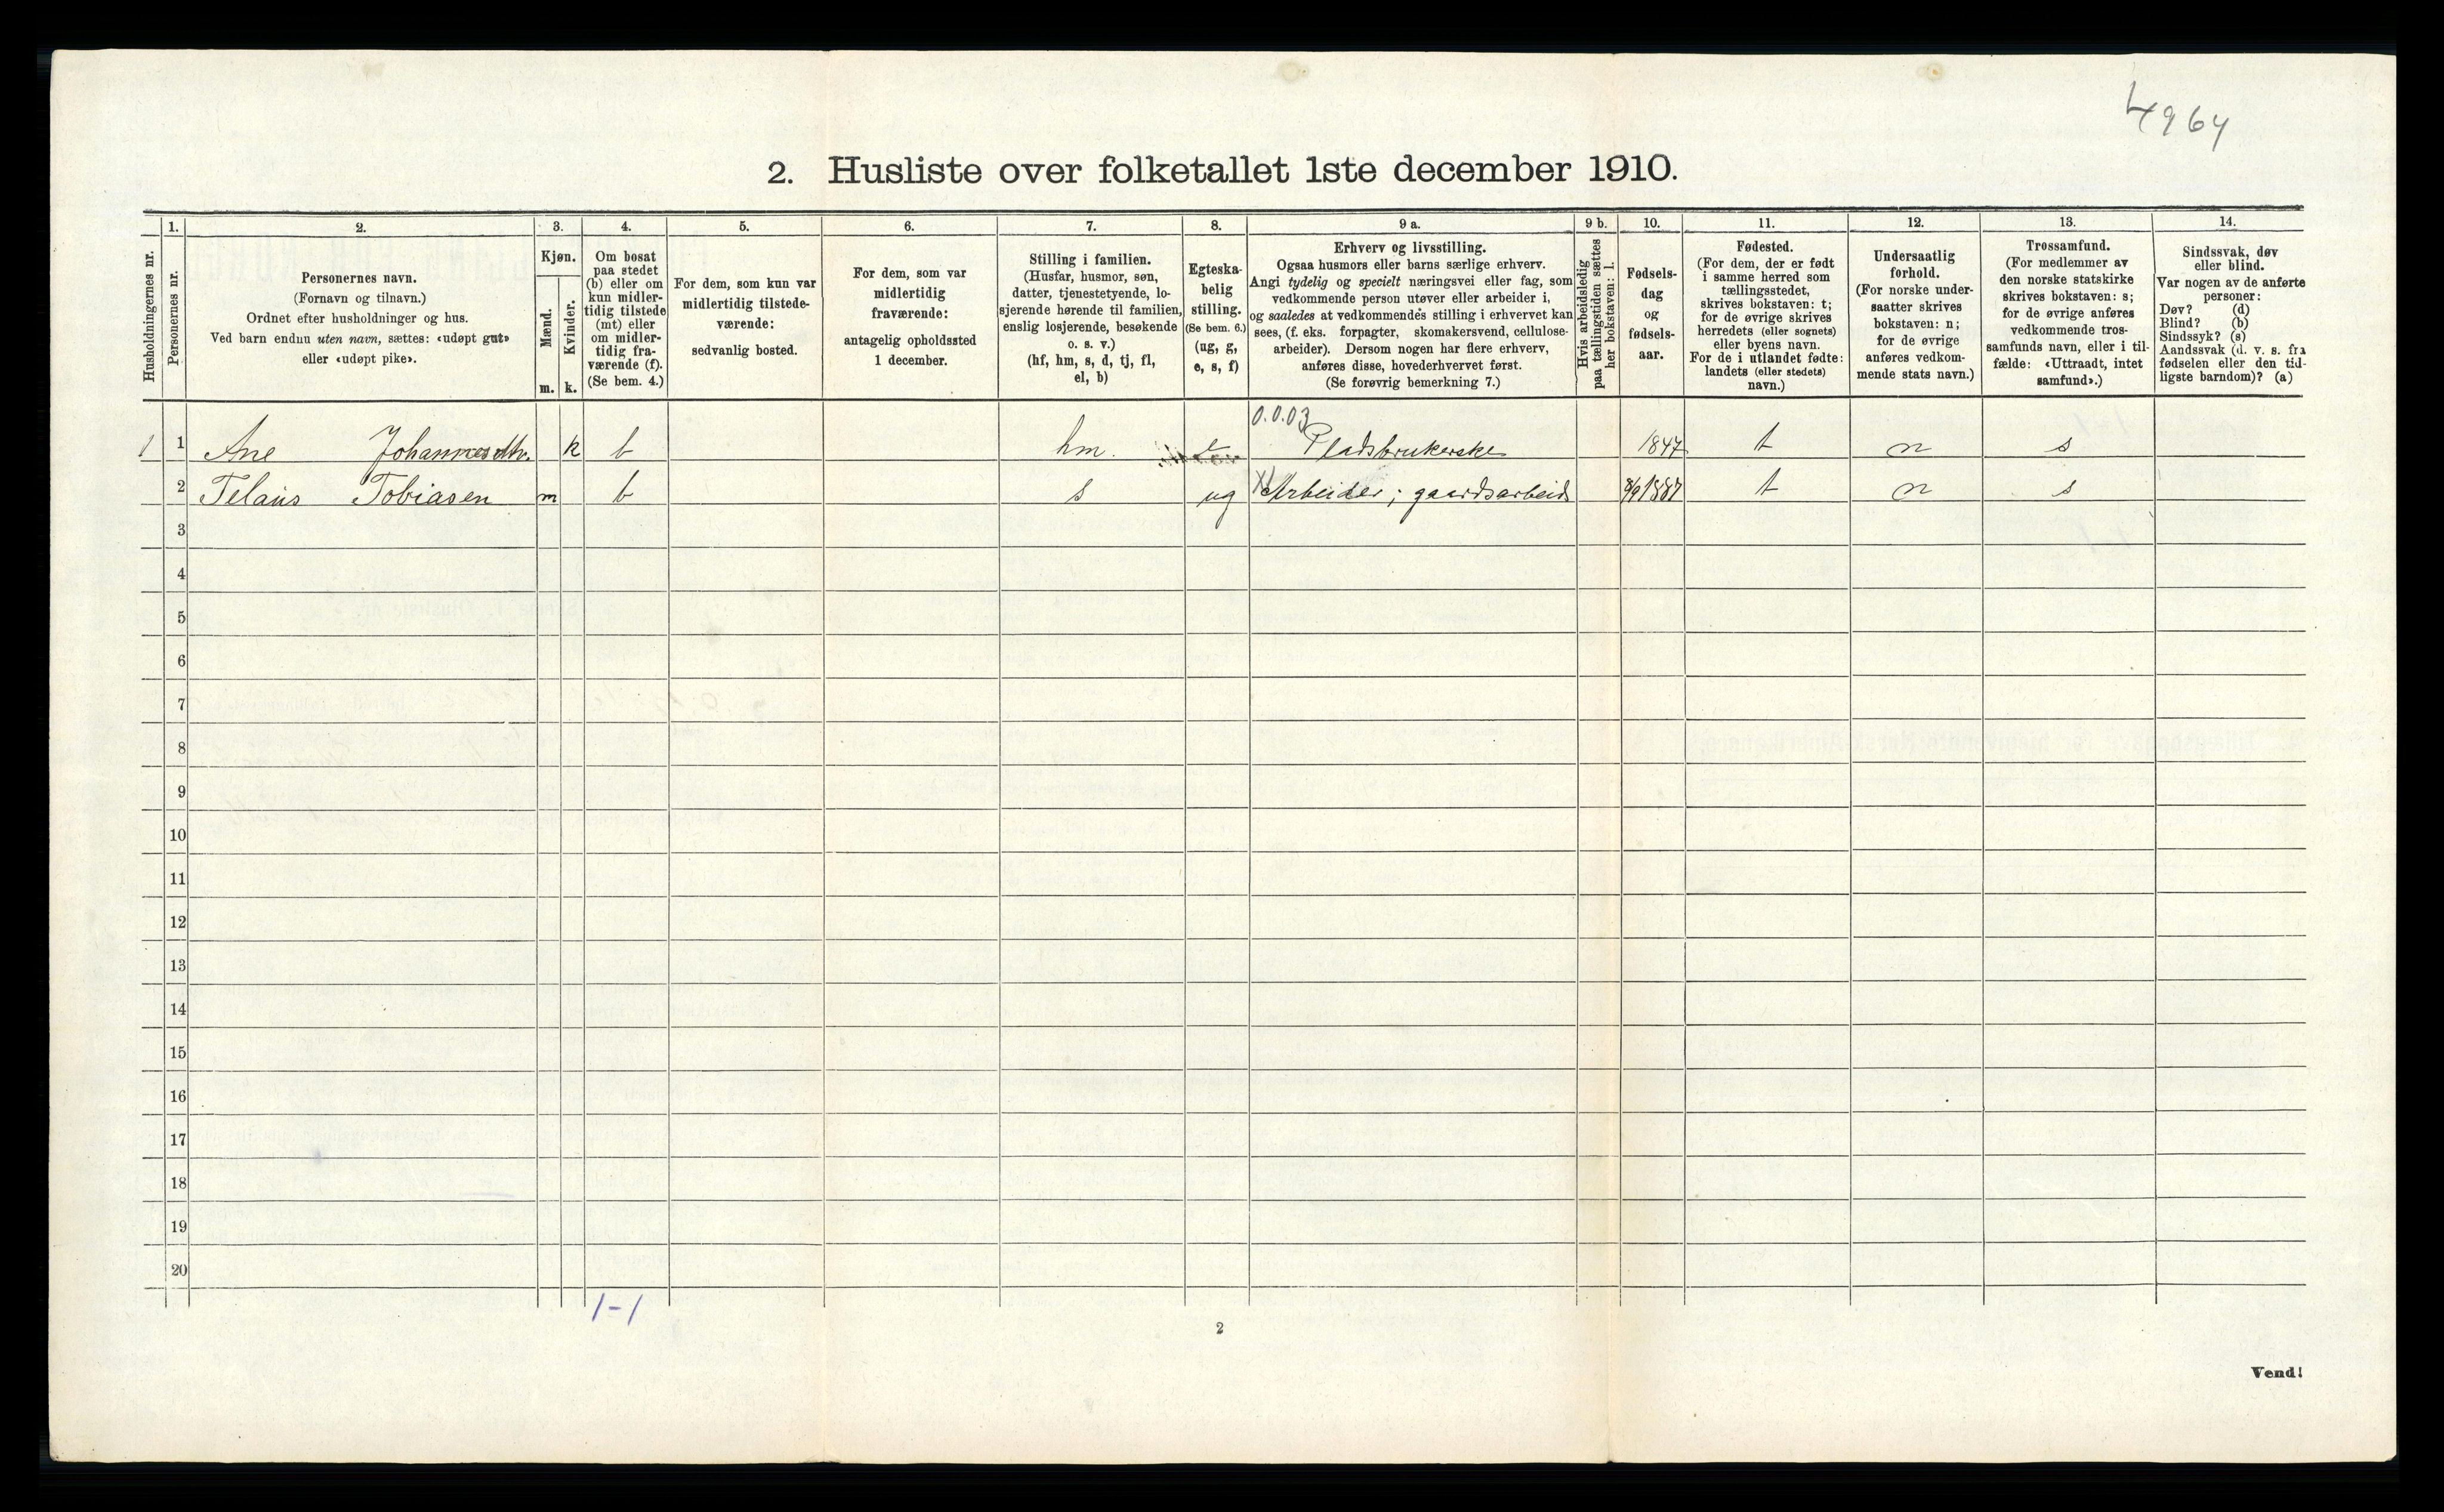 4964
2. Husliste over folketallet 1ste december 1910.
Husholdningernes nr.
1.
Personernes nr.
2.
Personernes navn.
(Fornavn og tilnavn.)
Ordnet efter husholdninger og hus.
Ved barn endnu uten navn, sættes: «udøpt gut»
eller «udøpt pike».
3.
Kjøn.
Mænd.
m.
Kvinder.
k.
4.
Om bosat
paa stedet
(b) eller om
kun midler-
tidig tilstede
(mt) eller
om midler-
tidig fra-
værende (f).
(Se bem. 4.)
5.
For dem, som kun var
midlertidig tilstede-
værende:
sedvanlig bosted.
6.
For dem, som var
midlertidig
fraværende:
antagelig opholdssted
1 december.
7.
Stilling i familien.
(Husfar, husmor, søn,
datter, tjenestetyende, lo-
sjerende hørende til familien,
enslig losjerende, besøkende
o. s. v.)
(hf, hm, s, d, tj, fl,
el, b)
8.
Egteska-
belig
stilling.
(Se bem. 6.)
(ug, g,
e, s, f)
9 a.
Erhverv og livsstilling.
Ogsaa husmors eller barns særlige erhverv.
Angi tydelig og specielt næringsvei eller fag, som
vedkommende person utøver eller arbeider i,
og saaledes at vedkommendes stilling i erhvervet kan
sees, (f. eks. forpagter, skomakersvend, cellulose-
arbeider). Dersom nogen har flere erhverv,
anføres disse, hovederhvervet først.
(Se forøvrig bemerkning 7.)
9 b.
Hvis arbeidsledig
paa tællingstiden sættes
her bokstaven: l.
10.
Fødsels-
dag
og
fødsels-
aar.
11.
Fødested.
(For dem, der er født
i samme herred som
tællingsstedet,
skrives bokstaven: t;
for de øvrige skrives
herredets (eller sognets)
eller byens navn.
For de i utlandet fødte:
landets (eller stedets)
navn.)
12.
Undersaatlig
forhold.
(For norske under-
saatter skrives
bokstaven: n;
for de øvrige
anføres vedkom-
mende stats navn.)
13.
Trossamfund.
(For medlemmer av
den norske statskirke
skrives bokstaven: s;
for de øvrige anføres
vedkommende tros-
samfunds navn, eller i til-
fælde: «Uttraadt, intet
samfund».)
14.
Sindssvak, døv
eller blind.
Var nogen av de anførte
personer:
Døv? (d)
Blind? (b)
Sindssyk? (s)
Aandssvak (d. v. s. fra
fødselen eller den tid-
ligste barndom)? (a)
0.0.03
1 1 Ane Johannesdtr. k b hm. e Pladsbrukerske 1847 t n s
2 Telaus Tobiasen m b s ug Arbeider; gaardsarbeid 1887 t n s
3
4
5
6
7
8
9
10
11
12
13
14
15
16
17
18
19
20
1-1
2
Vend!